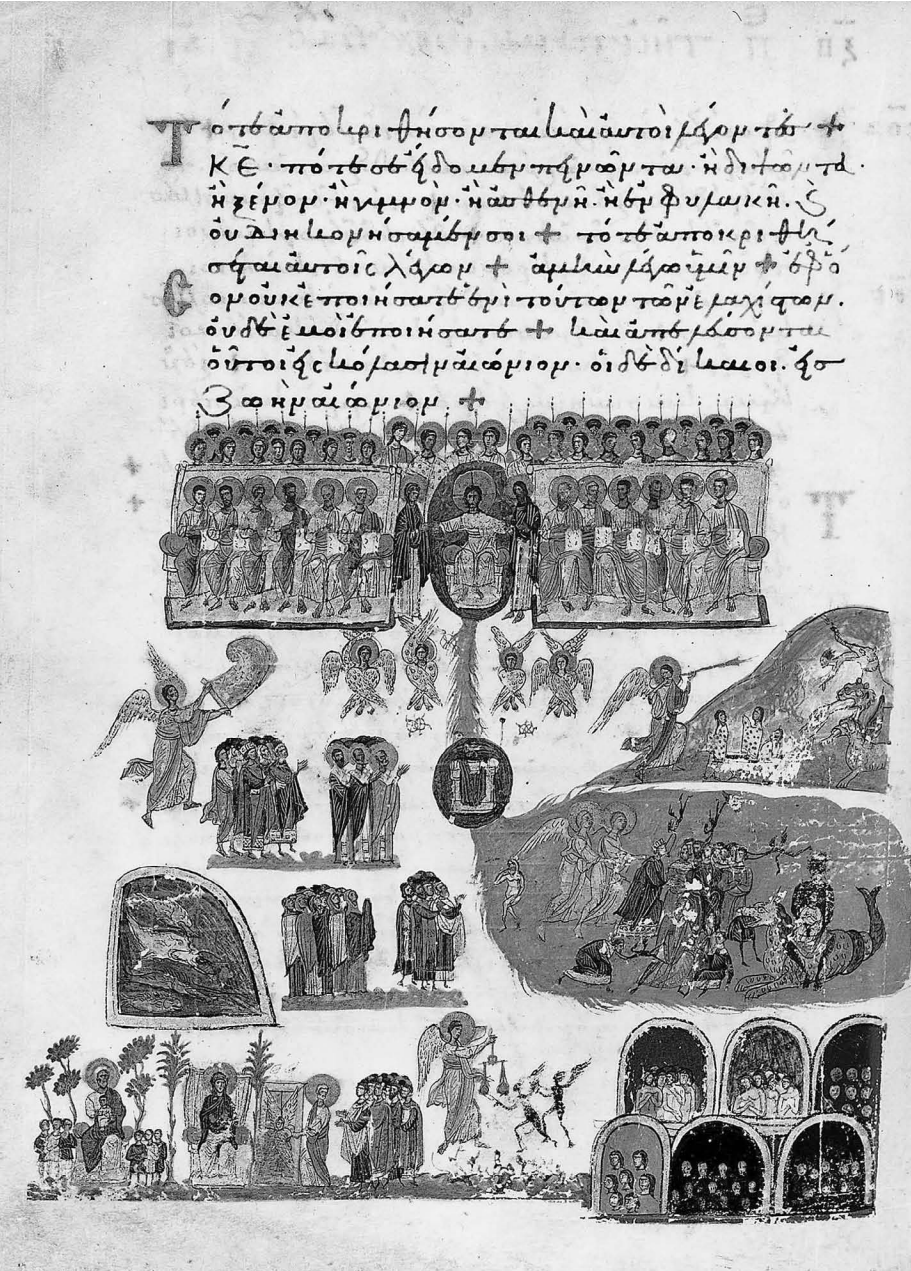 Τότε ἀποκριθήσονται καὶ αὐτοὶ λέγοντες +
ΚΕ · πότέ σε εἴδομεν πεινῶντα · ἢ διψῶντα ·
ἢ ξένον · ἢ γυμνὸν · ἢ ἀσθενῆ · ἢ ἐν φυλακῆ · καὶ
οὐ διηκονήσαμέν σοι + τότε ἀποκριθή
σεται αὐτοῖς λέγων + ἀμὴν λέγω ὑμῖν + ἐφ ὅ
σον οὐκ ἐποιήσατε ἑνὶ τούτων τῶν ἐλαχίστων ·
οὐδὲ ἐμοὶ ἐποιήσατε + καὶ ἀπελεύσονται
οὗτοι εἰς κόλασιν αἰώνιον · οἱ δὲ δίκαιοι · εἰς
ζωὴν αἰώνιον +